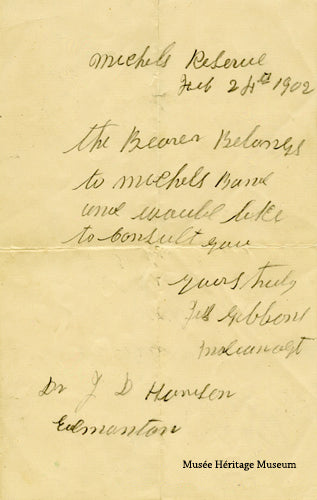 Michels Reserve
Feb 24th 1902
the Bearer Belongs
to Michels Band
and would like
to Consult you
yours truly
Gibbons
Indian agt
Dr J D Harrison
Edmonton
Musée Héritage Museum